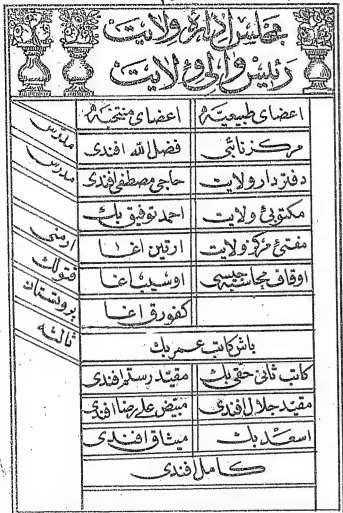 مجلس اداره‌ء ولایت
رئیس والیء ولایت
اعضای طبیعیه اعضای منتخبه
مرکز نائبی فضل الله افندی مدرس
دفتردار ولایت حاجی مصطفی افندی مدرس
مکتوبیء ولایت احمد توفیق بك
مفتیء مرکز ولایت ارتین اغا ارمنی
اوقاف محاسبه جیسی اوسیب اغا قتولك
کفورق اغا پروتستان
ثالثه
باش کاتب عمر بك
کاتب ثانی حقی بك مقید رستم افندی
مقید جلال افندی مبیض علی رضا افندی
اسعد بك میثاق افندی
کامل افندی